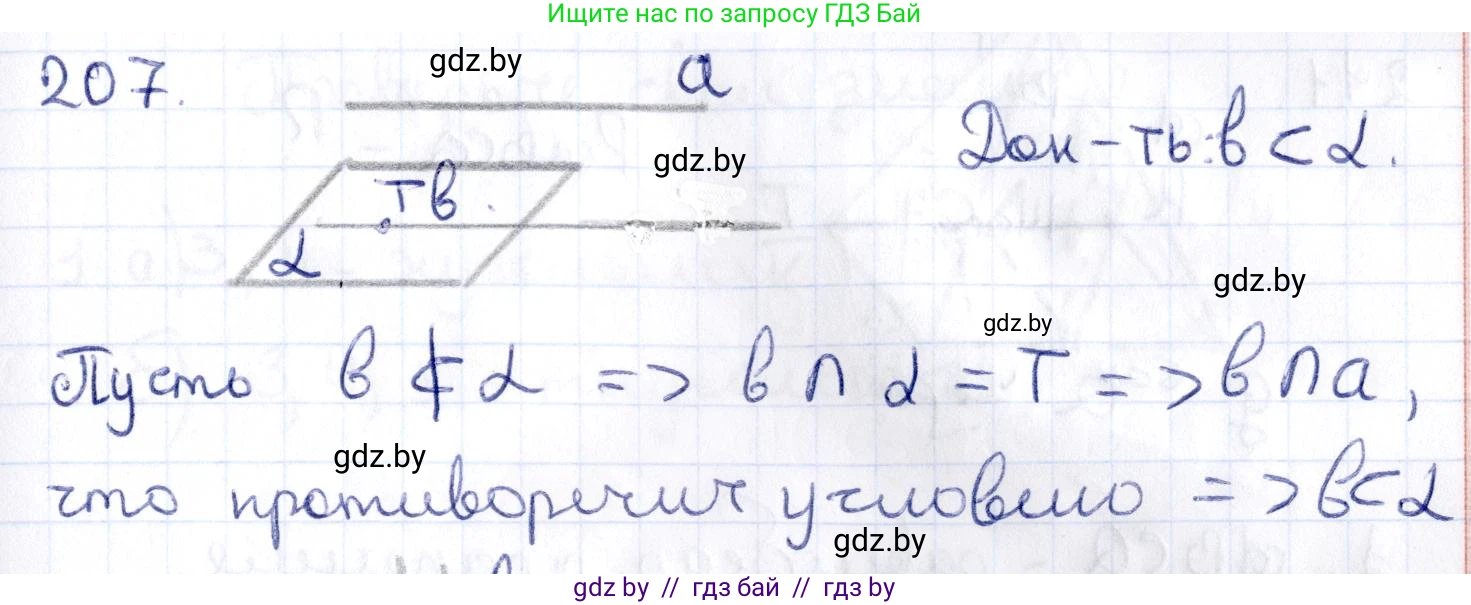 Ищите нас по запросу ГДЗ Бай
207. gdz.by a
Док-ть: в ⊂ α.
gdz.by
T в
α
gdz.by
gdz.by
Пусть в ⊄ α => в ∩ α = T => в ∩ a,
gdz.by
что противоречит условию => в ⊂ α
gdz.by
gdz by // гдз бай // гдз by